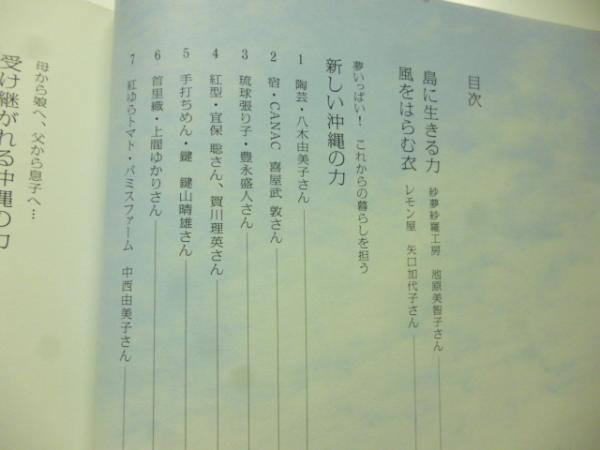 目次
島に生きる力 紗夢紗羅工房 池原美智子さん
風をはらむ衣 レモン屋 矢口加代子さん
夢いっぱい! これからの暮らしを担う
新しい沖縄の力
1 陶芸・八木由美子さん
2 宿・CANAC 喜屋武 敦さん
3 琉球張り子・豊永盛人さん
4 紅型・宜保 聡さん、賀川理英さん
5 手打ちめん・鍵 鍵山晴雄さん
6 首里織・上間ゆかりさん
7 紅ゆらトマト・バミスファーム 中西由美子さん
母から娘へ、父から息子へ…
受け継がれる沖縄の力